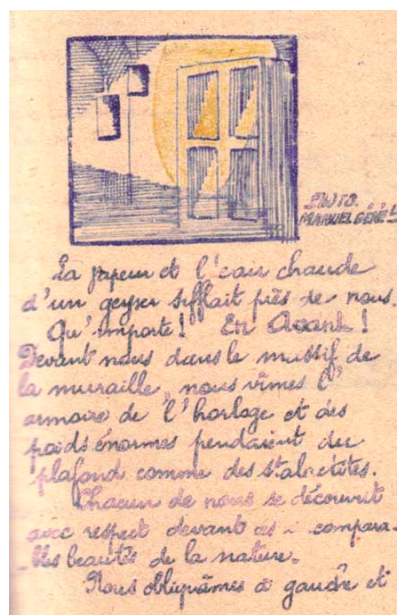 MANUEL
La vapeur et l'eau chaude
d'un geyser sifflait près de nous.
Qu'importe! En Avant!
Devant nous dans le massif de
la muraille, nous vîmes l'
armoire de l'horloge et des
poids énormes pendaient du
plafond comme des stalactites.
Chacun de nous se découvrit
avec respect devant compara-
bles beautés de la nature.
Nous obliquâmes à gauche et